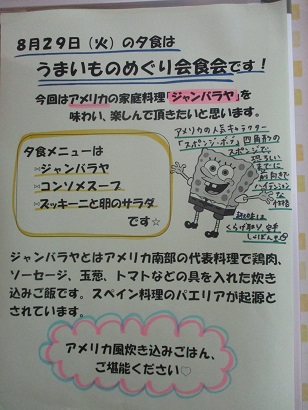 8月29日（火）の夕食は
うまいものめぐり会食会です！
今回はアメリカの家庭料理「ジャンバラヤ」を
味わい、楽しんで頂きたいと思います。
夕食メニューは
ジャンバラヤ
コンソメスープ
ズッキーニと卵のサラダ
です☆
アメリカの人気キャラクター
「スポンジ・ボブ」四角形の
スポンジで
恐ろしい
までに
前向きで
ハイテンション
な性格
趣味は
くらげ取り、空手
しゃぼん玉
ジャンバラヤとはアメリカ南部の代表料理で鶏肉、
ソーセージ、玉葱、トマトなどの具を入れた炊き
込みご飯です。スペイン料理のパエリアが起源と
されています。
アメリカ風炊き込みごはん、
ご堪能ください♡